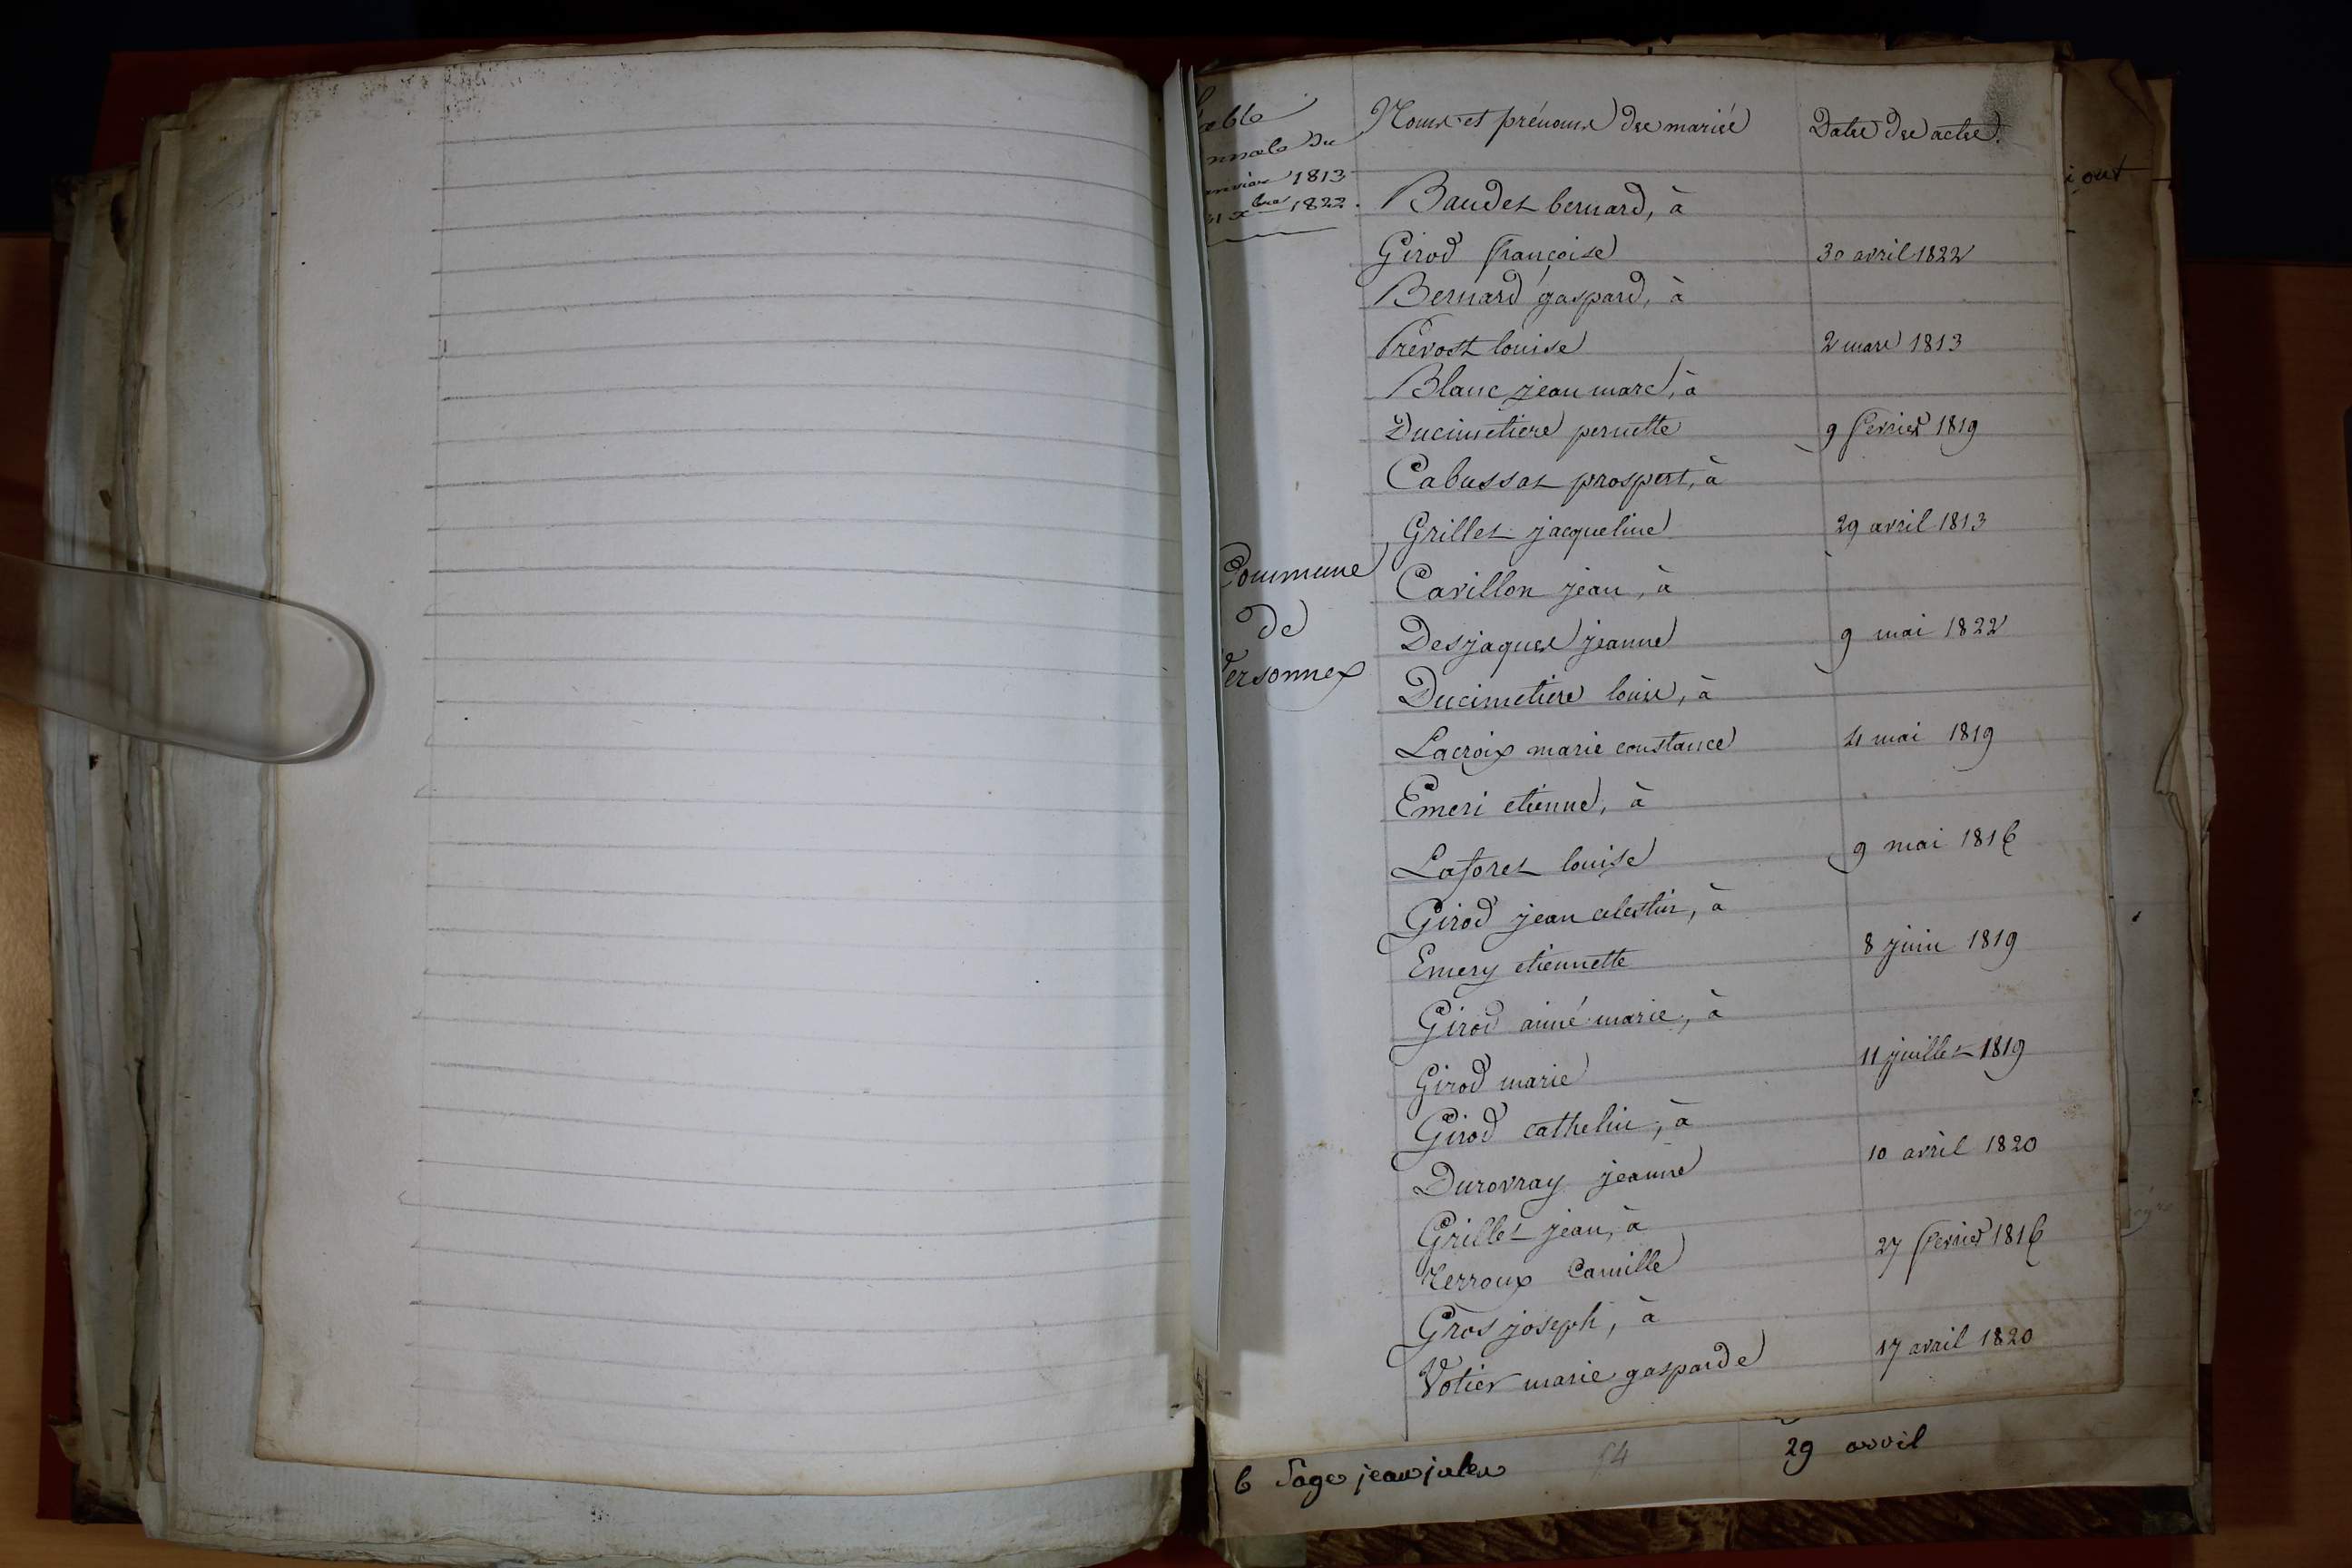 Table
nnale du
anvier 1813
31 xbre 1822.
Commune
de
Versonnex
Noms et prénoms des mariés
Dates des actes.
Baudet bernard, à
Girod françoise
30 avril 1822
Bernard gaspard, à
Prevost louise
2 mars 1813
Blanc jean marc, à
Ducimetiere pernette
9 fevrier 1819
Cabussat prospert, à
Grillet jacqueline
29 avril 1813
Cavillon jean, à
Desjaques jeanne
9 mai 1822
Ducimetiere louis, à
Lacroix marie constance
4 mai 1819
Emeri etienne, à
Laforet louise
9 mai 1816
Girod jean celestin, à
Emery etiennette
8 juin 1819
Girod aimé marie, à
Girod marie
11 juillet 1819
Girod cathelin, à
Durovray jeanne
10 avril 1820
Grillet jean, à
Terroux Camille
27 fevrier 1816
Gros joseph, à
Votier marie gasparde
17 avril 1820
6 Page jean jules
29 avril
i ont